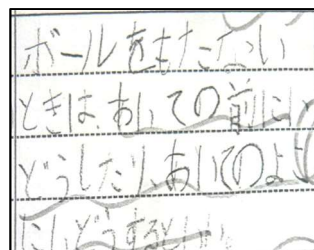 ボールをもたない
ときは、あいての前にい
どうしたり、あいてのよこ
にいどうする